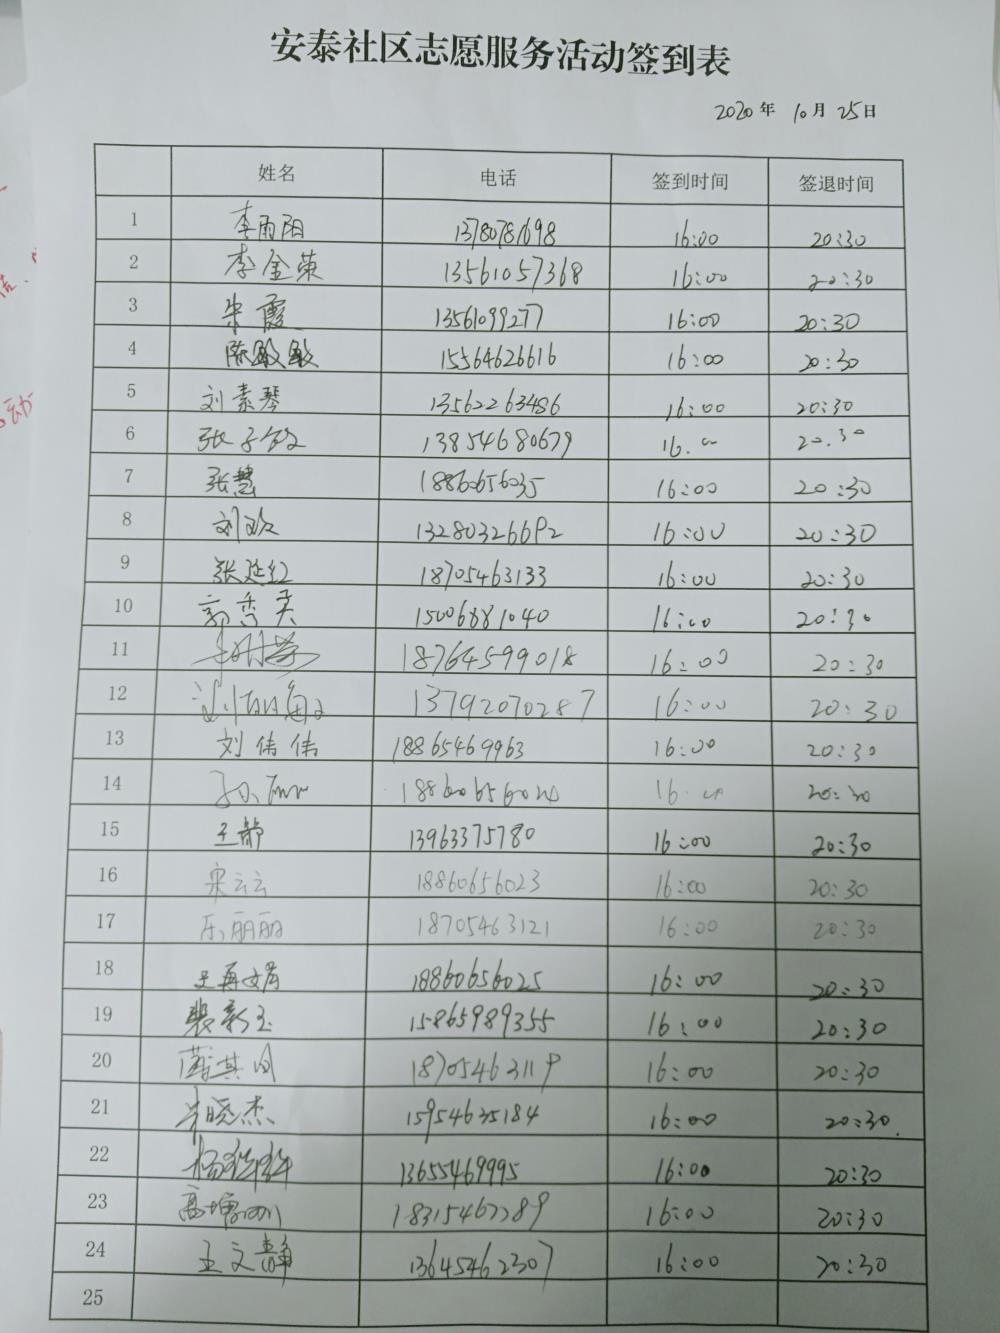 安泰社区志愿服务活动签到表
2020年 10月 25日
姓名 电话 签到时间 签退时间
1 李雨阳 13780781698 16:00 20:30
2 李金荣 13561057368 16:00 20:30
3 朱霞 13561099277 16:00 20:30
4 陈敏敏 15564626616 16:00 20:30
5 刘素琴 13562263486 16:00 20:30
6 张子敏 13854680679 16:00 20:30
7 张慧 18860656035 16:00 20:30
8 刘欢 13280326692 16:00 20:30
9 张延红 18705463133 16:00 20:30
10 郭秀英 15006881040 16:00 20:30
11 18764599018 16:00 20:30
12 13792070287 16:00 20:30
13 刘伟伟 18865469963 16:00 20:30
14 16:00 20:30
15 王静 13963375780 16:00 20:30
16 宋云云 18860656023 16:00 20:30
17 乐丽丽 18705463121 16:00 20:30
18 18860656025 16:00 20:30
19 裴新玉 15865989355 16:00 20:30
20 18705463119 16:00 20:30
21 晓杰 15954635184 16:00 20:30
22 杨 13655469995 16:00 20:30
23 高 18315467289 16:00 20:30
24 王文静 13645462307 16:00 20:30
25